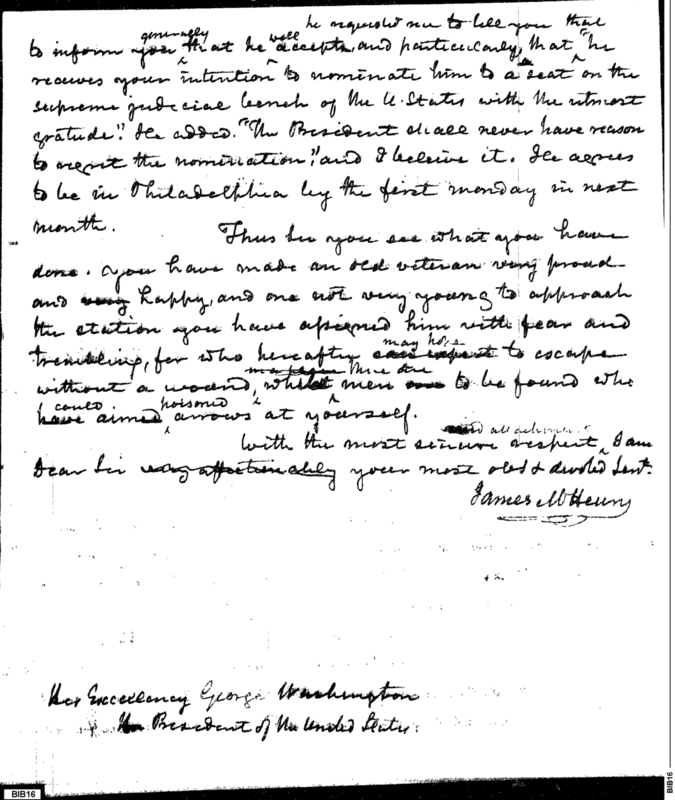 he requested me to tell you that
generally well
to inform you that he accepts, and particularly, that "he
receives your intention to nominate him to a seat on the
supreme judicial bench of the U. States with the utmost
gratude". He added. "The President shall never have reason
to regret the nomination", and I beleive it. He agrees
to be in Philadelphia by the first monday in next
month.
Thus Sir you see what you have
done. You have made an old veteran very proud
and very happy, and one not very young to approach
the station you have assigned him with fear and
may hope
trembling, for who hereafter can expect to escape
there are
without a wound, whilst men to be found who
could poisoned
have aimed arrows at yourself.
attachment
With the most sincere respect, I am
Dear Sir very affectionately your most obd & devoted Servt.
James McHenry
His Excellency George Washington
The President of the United States.
BIB16
BIB16